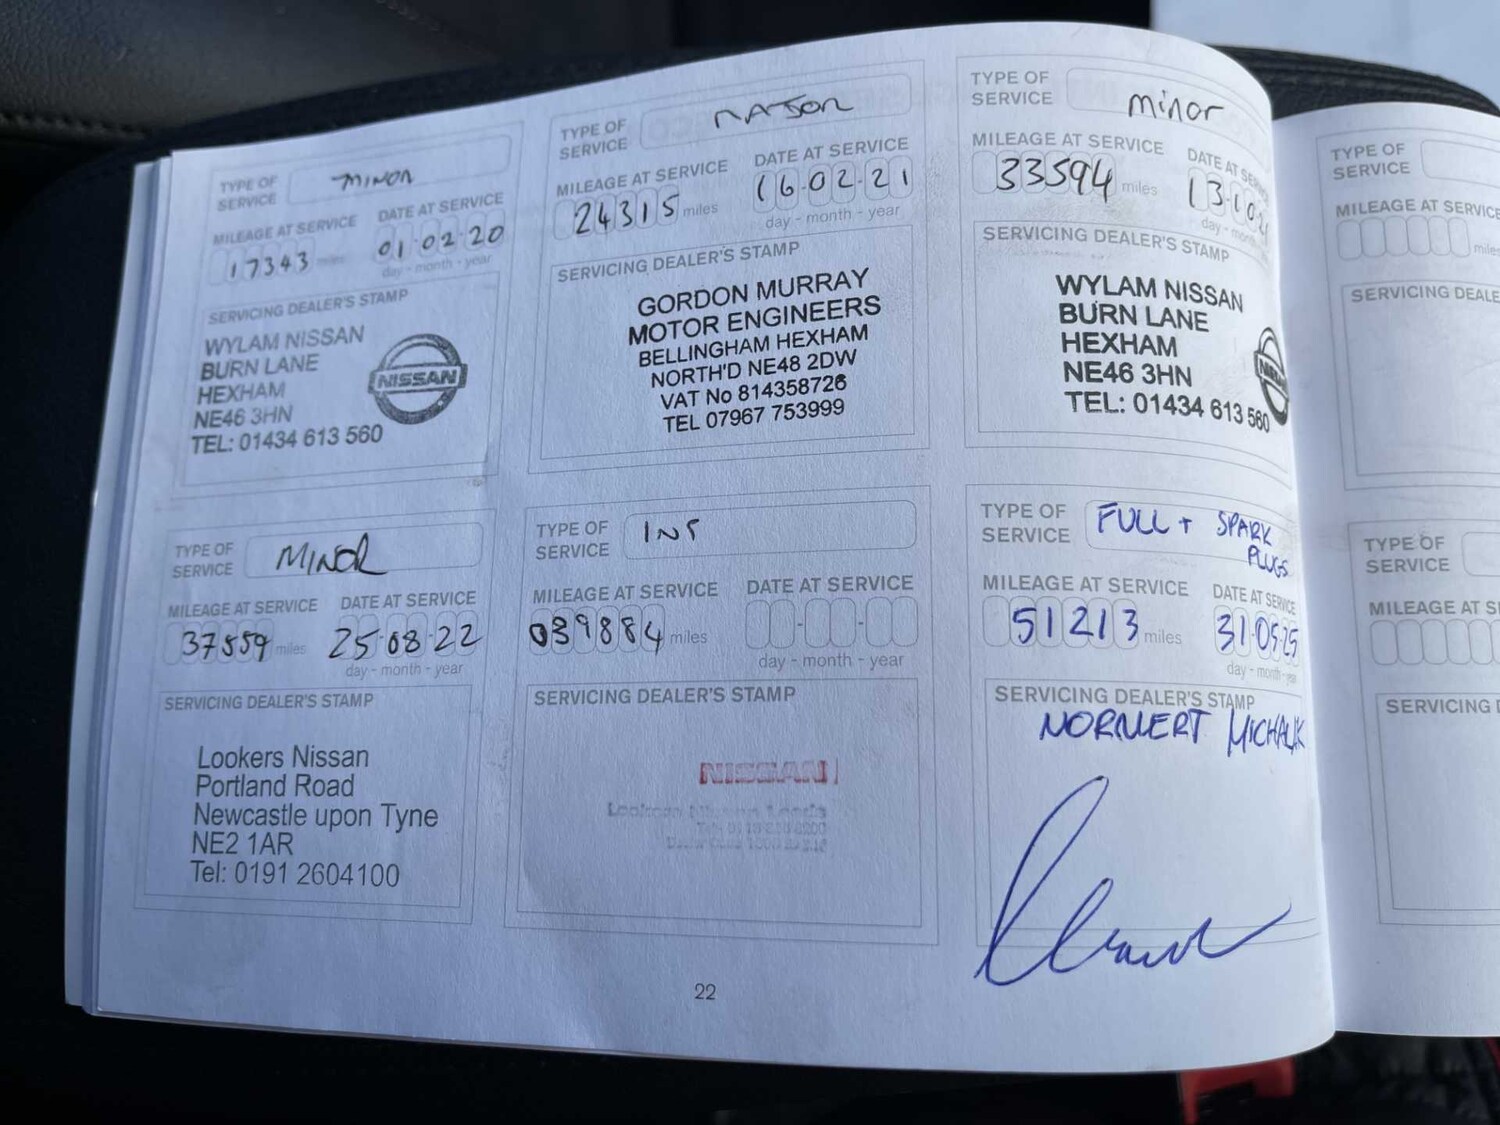 TYPE OF SERVICE MINOR
MILEAGE AT SERVICE
17343 miles
DATE AT SERVICE
01-02-20
day - month - year
SERVICING DEALER'S STAMP
WYLAM NISSAN
BURN LANE
HEXHAM
NE46 3HN
TEL: 01434 613 560
NISSAN
TYPE OF SERVICE MAJOR
MILEAGE AT SERVICE
24315 miles
DATE AT SERVICE
16-02-21
day - month - year
SERVICING DEALER'S STAMP
GORDON MURRAY
MOTOR ENGINEERS
BELLINGHAM HEXHAM
NORTH'D NE48 2DW
VAT No 814358726
TEL 07967 753999
TYPE OF SERVICE minor
MILEAGE AT SERVICE
33594 miles
DATE AT SERVICE
day - month
SERVICING DEALER'S STAMP
WYLAM NISSAN
BURN LANE
HEXHAM
NE46 3HN
TEL: 01434 613 560
TYPE OF SERVICE MINOR
MILEAGE AT SERVICE
37559 miles
DATE AT SERVICE
25-08-22
day - month - year
SERVICING DEALER'S STAMP
Lookers Nissan
Portland Road
Newcastle upon Tyne
NE2 1AR
Tel: 0191 2604100
TYPE OF SERVICE INT
MILEAGE AT SERVICE
039884 miles
DATE AT SERVICE
day - month - year
SERVICING DEALER'S STAMP
NISSAN
Lookers Nissan Leeds
TYPE OF SERVICE FULL + SPARK
PLUGS
MILEAGE AT SERVICE
51213 miles
DATE AT SERVICE
31-05-25
day - month - year
SERVICING DEALER'S STAMP
MICHALIK
22
TYPE OF
SERVICE
MILEAGE AT SERVICE
miles
SERVICING DEALE
TYPE OF
SERVICE
MILEAGE AT S
SERVICING